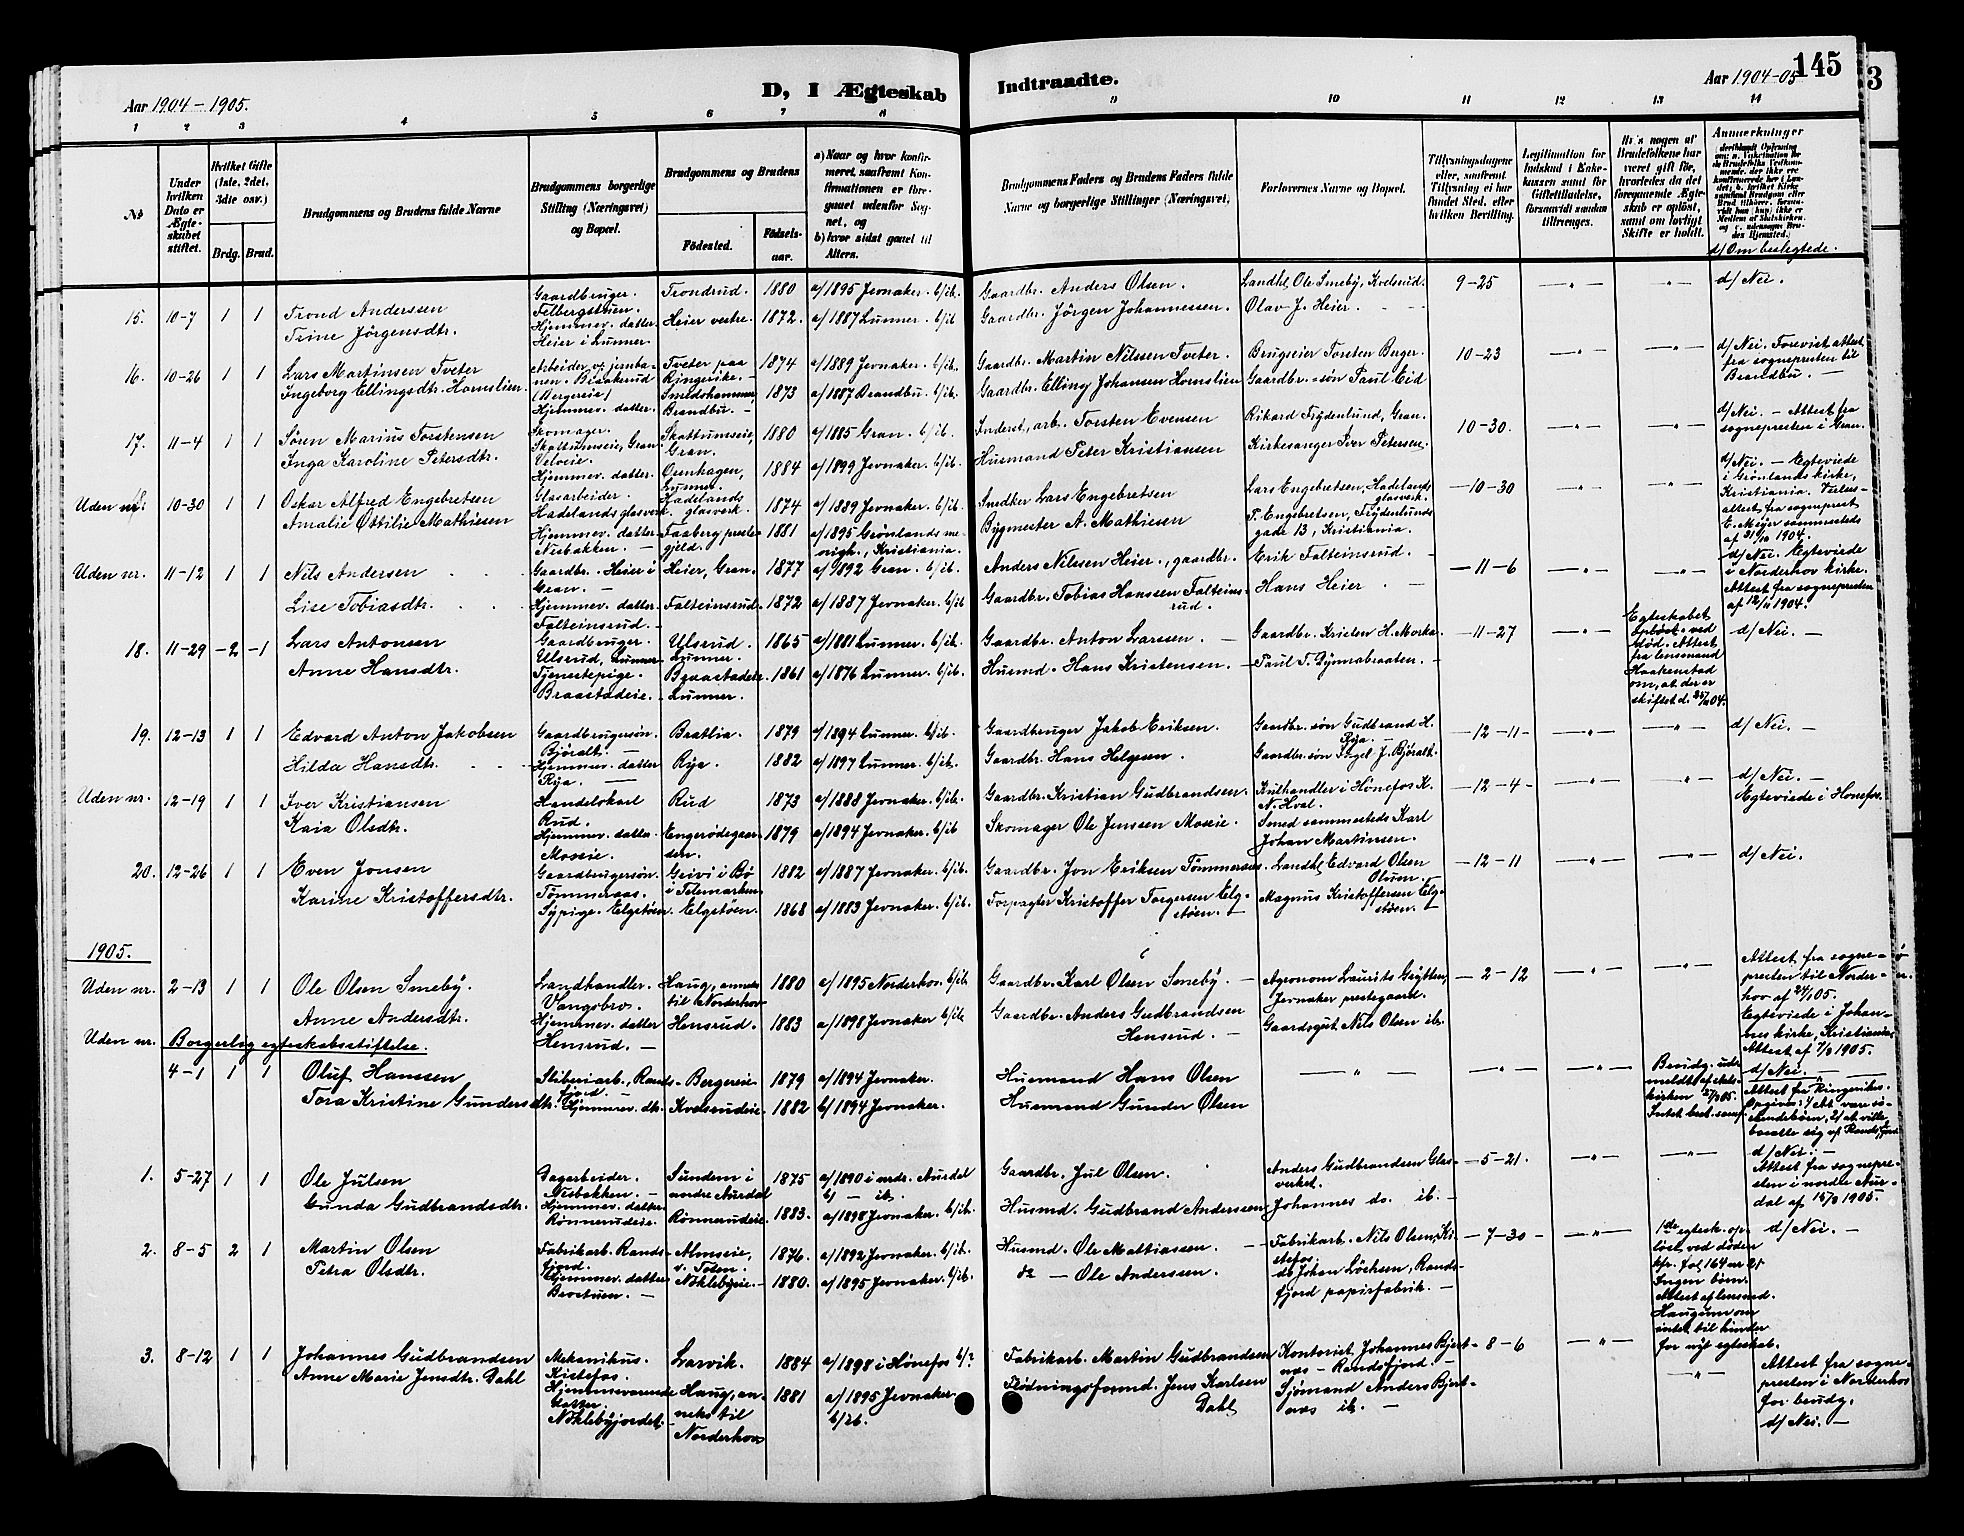 Aar 1904-1905.
D, I Ægteskab
Indtraadte.
Aar 1904-05
145
3
1 2 3 4 5 6 7 8 9 10 11 12 13 14
№
Under hvilken Dato er Ægteskabet stiftet.
Hvilket Gifte (1ste, 2det, 3die osv.)
Brdg. Brud.
Brudgommens og Brudens fulde Navne
Brudgommens borgerlige Stilling (Næringsvei) og Bopæl.
Brudgommens og Brudens
Fødested.
Fødselsaar.
a) Naar og hvor konfirmeret, saafremt Konfirmationen er foregaaet udenfor Sognet, og
b) hvor sidst gaaet til Alters.
Brudgommens Faders og Brudens Faders fulde Navne og borgerlige Stillinger (Næringsvei)
Forlovernes Navne og Bopæl.
Tillysningsdagene eller, saafremt Tillysning ei har fundet Sted, efter hvilken Bevilling.
Legitimation for Indskud i Enkekassen samt for Giftetilladelse, forsaavidt saadan tiltrænges.
Hvis nogen af Brudefolkene har været gift før, hvorledes da det foregaaende Ægteskab er opløst, samt om lovligt Skifte er holdt.
Anmærkninger
d/ Om beslegtede.
15. 10-7 1 1 Trond Andersen
Trine Jörgensdtr.
Gaardbruger.
Felbergstuen.
Hjemmev. datter
Heier i Lunner.
Trondrud. 1880 a/1895 Jevnaker. b/ib.
Heier vestre. 1872. a/1887 Lunner. b/ib
Gaardbr. Anders Olsen.
Gaardbr. Jörgen Johannessen.
Landhl. Ole Smeby, Kvelsrud.
Olav J. Heier.
9-25
d/ Nei.
16. 10-26 1 1 Lars Martinsen Tveter
Ingeborg Ellingsdtr. Hornslien.
Arbeider v. jernbanen. Bisakerud
(Bergereie)
Hjemmev. datter.
Tveter paa Ringerike. 1874 a/1889 Jevnaker. b/ib.
Smedshammer, Brandbu. 1873 a/1887 Brandbu. b/ib.
Gaardbr. Martin Nilssen Tveter.
Gaardbr. Elling Johansen Hornslien
Brugseier Torsten Berger.
Gaardbr.-søn Paul Eid
10-23
d/ Nei. Forevist attest fra sognepresten til Brandbu.
17. 11-4 1 1 Sören Marius Torstensen
Inga Karoline Petersdtr.
Skomager.
Skattumseie, Gran
Velveie.
Hjemmev. datter.
Skattumseie, Gran. 1880 a/1885 Gran. b/ib.
Oenhagen, Lunner. 1884 a/1899 Jevnaker. b/ib.
Inderst, arb. Torsten Evensen
Husmand Peter Kristiansen
Rikard Frydenlund, Gran.
Kirkesanger Iver Petersen.
10-30.
d/ Nei. - Attest fra sognepresten i Gran.
Uden nr. 10-30 1 1 Oskar Alfred Engebretsen
Amalie Ottilie Mathiesen
Glasarbeider.
Hadelandsglasverk.
Hjemmev. datter.
Nisbakken.
Hadelands glasverk. 1874 a/1889 Jevnaker. b/ib.
Faaberg prestegjeld. 1881 a/1895 Grønlands menigh., Kristiania.
Snedker Lars Engebretsen
Bygmester A. Mathiesen
Lars Engebretsen, Hadelands glasverk.
P. Engebretsen, Frydenlunds gade 13, Kristiania.
10-30
d/ Nei. - Egteviede i Grønlands kirke, Kristiania. Vielsesattest fra sogneprest E. Meijn sammesteds af 31/10 1904.
Uden nr. 11-12 1 1 Nils Andersen
Lise Tobiasdtr.
Gaardbr. Heier i Gran.
Hjemmev. datter.
Falteinsrud.
Heier, Gran. 1877 a/1892 Gran. b/ib.
Falteinsrud. 1872 a/1887 Jevnaker. b/ib
Anders Nilssen Heier, gaardbr.
Gaardbr. Tobias Hanssen Falteinsrud.
Erik Falteinsrud.
Hans Heier
11-6
d/ Nei. Egteviede i Norderhov kirke. Attest fra sognepresten af 12/11 1904.
18. 11-29 2 1 Lars Antonsen
Anne Hansdtr.
Gaardbruger.
Ulsrud, Lunner
Tjenestepige.
Braastadeie.
Ulsrud, Lunner. 1865 a/1881 Lunner. b/ib.
Braastadeie, Lunner. 1861 a/1876 Lunner. b/ib.
Gaardbr. Anton Larssen.
Husmd. Hans Kristensen.
Gaardbr. Kristen H. Morka
Paul T. Dynnabraaten.
11-27
Egteskabet opløst ved död. Attest fra lensmand Haakenstad om, at der er skiftet d. 25/11 04.
d/ Nei.
19. 12-13 1 1 Edvard Anton Jakobsen
Hilda Hansdtr.
Gaardbrugersøn.
Björalt.
Hjemmev. datter
Rya.
Bratlia. 1879 a/1894 Lunner. b/ib.
Rya. 1882 a/1897 Lunner. b/ib.
Gaardbruger Jakob Eriksen.
Gaardbr. Hans Helgesen.
Gaardbr. søn Gudbrand H. Rya
Gaardbr. søn Engel J. Björalt.
12-11
d/ Nei.
Uden nr. 12-19 1 1 Iver Kristiansen
Kaia Olsdtr.
Handelskarl
Rud.
Hjemmev. datter.
Moseie.
Rud 1873 a/1888 Jevnaker. b/ib.
Engerödegaarden. 1879 a/1894 Jevnaker. b/ib
Gaardbr. Kristian Gudbrandsen
Skomager Ole Jenssen Moseie.
Kulhandler i Hönefos K. N. Hval.
Smed sammesteds Karl Johan Martinsen.
12-4
d/ Nei.
Egteviede i Hönefos.
20. 12-26 1 1 Even Jonsen
Karine Kristoffersdtr.
Gaardbrugersön.
Tömmeraas.
Sypige. Elgstöen.
Grivi i Bø i Telemarken 1882 a/1887 Jevnaker. b/ib.
Elgstöen. 1868 a/1883 Jevnaker. b/ib.
Gaardbr. Jon Eriksen Tömmeraas.
Forpagter Kristoffer Torgersen Elgstöen.
Landhl. Edvard Olsen Olum.
Magnus Kristoffersen Elgstöen.
12-11
d/ Nei.
1905.
Uden nr. 2-13 1 1 Ole Olsen Smeby.
Anne Andersdtr.
Landhandler.
Vangsbro.
Hjemmev. datter
Hensrud.
Haug, annex til Norderhov 1880 a/1895 Norderhov. b/ib.
Hensrud. 1883 a/1898 Jevnaker b/ib
Gaardbr. Karl Olsen Smeby.
Gaardbr. Anders Gudbrandsen Hensrud.
Agronom Laurits Grytten, Jevnaker prestegaard.
Gaardsgut Nils Olsen ib.
2-12
Attest fra sognepresten til Norderhov af 24/1 05.
Egteviede i Johannes kirke, Kristiania.
Attest af 7/3 1905.
Uden nr. Borgerlig egteskabsstiftelse.
4-1 1 1 Oluf Hanssen
Tora Kristine Gundersdtr.
Sliberiarb., Randsfjord.
Hjemmev. dtr.
Bergereie 1879 a/1894 Jevnaker.
Kvelsrudeie. 1882 b/1894 Jevnaker.
Husmand Hans Olsen
Husmand Gunder Olsen
Brudg. udmeldt af statskirken 27/3 05.
d/ Nei.
Attest fra Ringerike.
1. 5-27 1 1 Ole Julsen
Gunda Gudbrandsdtr.
Dagarbeider.
Nisbakken.
Hjemmev. datter
Rönnerudeie.
Sundem i nordre Aurdal 1875 a/1890 i nrdr. Aurdal b/ - ib.
Rönnerudeie. 1883. a/1898 Jevnaker. b/ib.
Gaardbr. Jul Olsen.
Husmd. Gudbrand Anderssen
Anders Gudbrandsen Glasverket.
Johannes do. ib.
5-21.
d/ Nei.
Attest fra sognepresten i nordre Aurdal af 15/3 1905.
2. 8-5 2 1 Martin Olsen
Petra Olsdtr.
Fabrikarb. Randsfjord.
Hjemmev. datter
Brostuen.
Almseie, v. Toten. 1876. a/1892 Jevnaker. b/ib.
Nöklebyeie. 1880. a/1895 Jevnaker. b/ib.
Husmd. Ole Mattiassen.
do - Ole Anderssen.
Fabrikarb. Nils Olsen, Kistefos.
do Johan Löchsen, Randsfjord papirfabrik.
7-30
1ste egtesk. opløst ved döden
Ingen børn.
Attest af lensmd. Haugum om intet til hinder for nyt egteskab.
d/ Nei.
3. 8-12 1 1 Johannes Gudbrandsen
Anne Marie Jensdtr. Dahl
Mekanikus.
Kistefos.
Hjemmeværende datter.
Nöklebyjordet.
Larvik. 1884 a/1898 i Hönefos b/?
Haug, anneks til Norderhov 1881 a/1895 Jevnaker b/ib.
Fabrikarb. Martin Gudbrandsen
Flödningsformd. Jens Karlsen Dahl
Kontorist Johannes Bjertnæs - Randsfjord.
Sjömand Anders Bjertnæs ib.
8-6
Attest fra sognepresten i Norderhov for brudg.
d/ Nei.